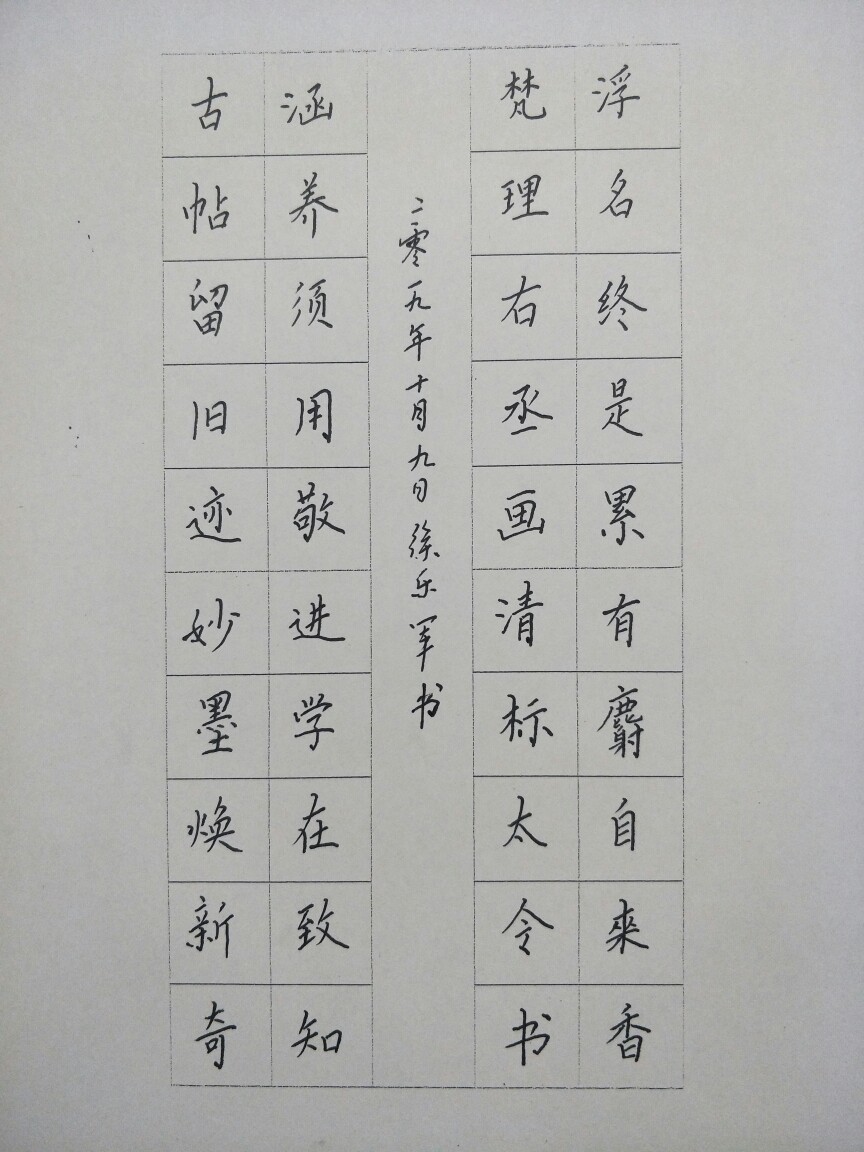 浮名终是累有麝自来香
梵理右丞画清标太令书
二零一九年十月九日徐乐军书
涵养须用敬进学在致知
古帖留旧迹妙墨焕新奇